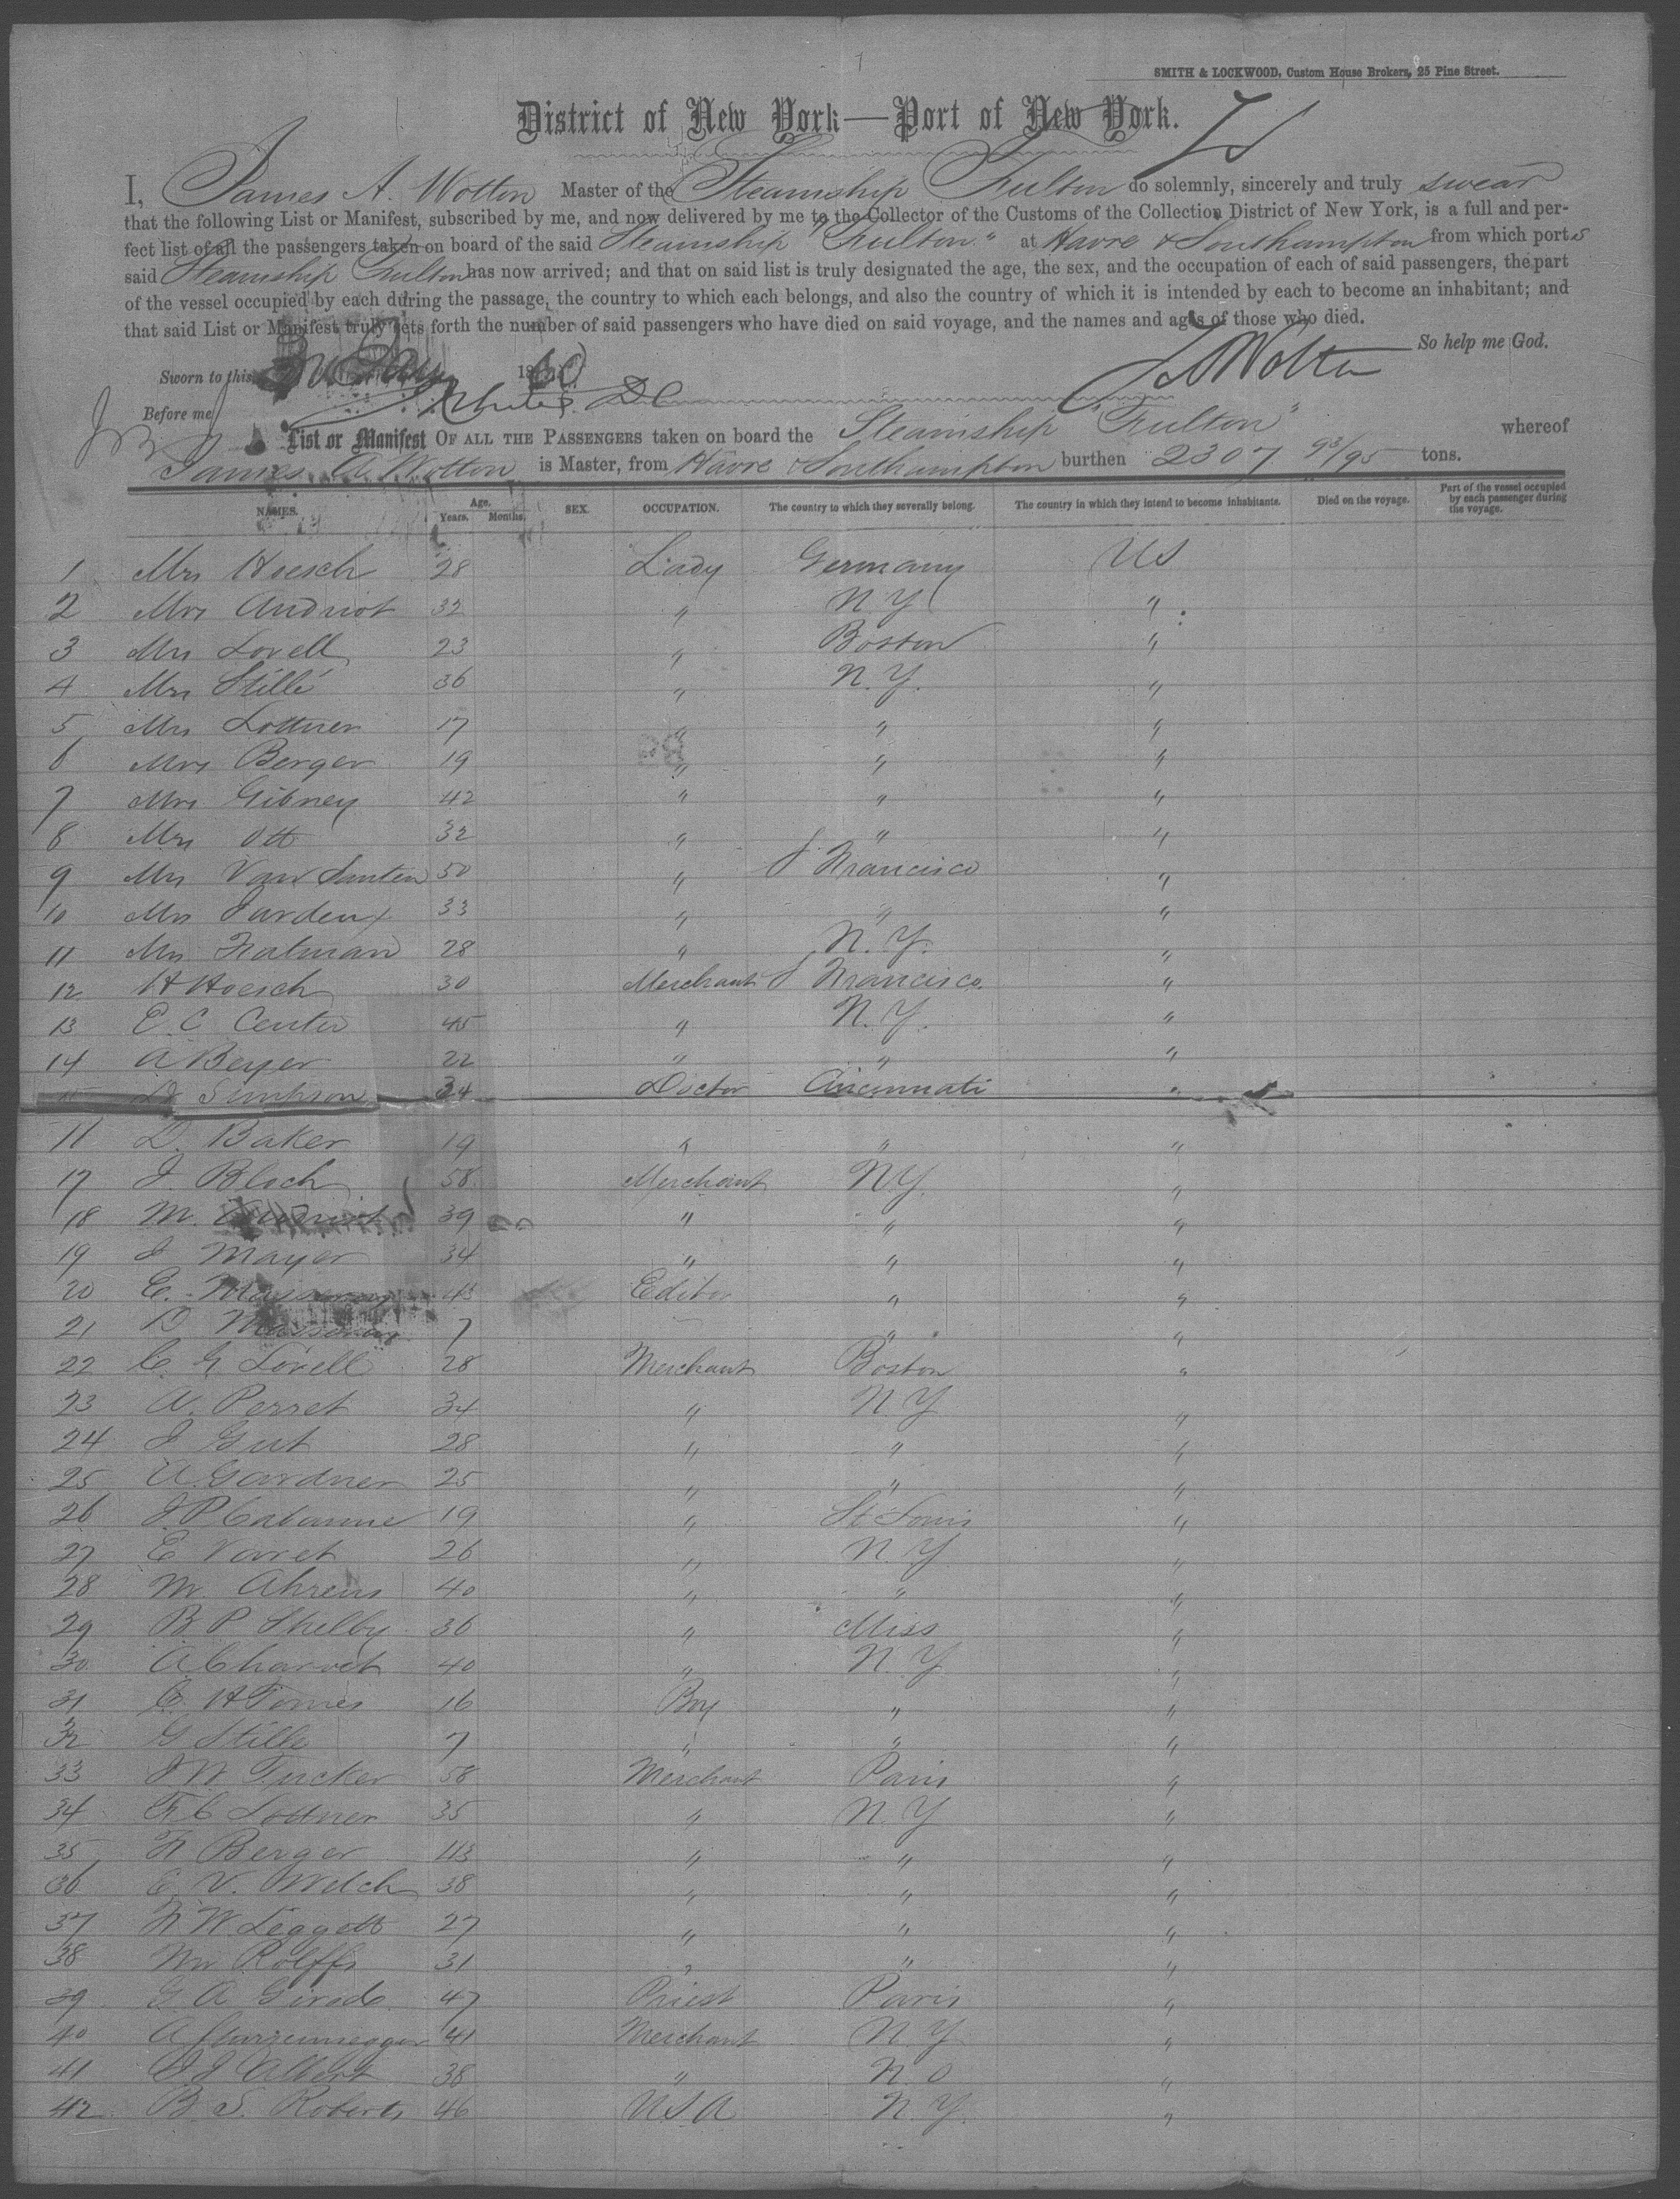 SMITH & LOCKWOOD, Custom House Brokers, 25 Pine Street.
District of New York—Port of New York.
I, James A. Wotton Master of the Steamship Fulton do solemnly, sincerely and truly swear
that the following List or Manifest, subscribed by me, and now delivered by me to the Collector of the Customs of the Collection District of New York, is a full and per-
fect list of all the passengers taken on board of the said Steamship "Fulton" at Havre & Southampton from which ports
said Steamship Fulton has now arrived; and that on said list is truly designated the age, the sex, and the occupation of each of said passengers, the part
of the vessel occupied by each during the passage, the country to which each belongs, and also the country of which it is intended by each to become an inhabitant; and
that said List or Manifest truly sets forth the number of said passengers who have died on said voyage, and the names and ages of those who died.
So help me God.
Sworn to this 1860 J A Wotton
Before me
List or Manifest OF ALL THE PASSENGERS taken on board the Steamship "Fulton" whereof
James A Wotton is Master, from Havre & Southampton burthen 2307 93/95 tons.
NAMES. Age. Years. Months. SEX. OCCUPATION. The country to which they severally belong. The country in which they intend to become inhabitants. Died on the voyage. Part of the vessel occupied by each passenger during the voyage.
1 Mrs Hoesch 28 Lady Germany US
2 Mrs Andriot 32 " N.Y "
3 Mrs Lovell 23 " Boston "
4 Mrs Stillé 36 " N.Y. "
5 Mrs Lottner 17 " " "
6 Mrs Berger 19 " " "
7 Mrs Gibney 42 " " "
8 Mrs Ott 32 " " "
9 Mrs Van Santen 50 " S Francisco "
10 Mrs 33 " " "
11 Mrs Fatman 28 " N.Y. "
12 H Hoesch 30 Merchant S Francisco "
13 E. C Center 45 " N.Y. "
14 A Beyer 22 " " "
15 Simpson 34 Doctor Cincinnati "
16 D. Baker 19 " " "
17 J. Bloch 58 Merchant N.Y. "
18 M. Andriot 39 " " "
19 J Mayer 34 " " "
20 E. Masseras 43 Editor " "
21 D Masseras 7 " "
22 C. G Lovell 28 Merchant Boston "
23 A. Perret 34 " N.Y "
24 J Gut 28 " " "
25 A Gardner 25 " " "
26 J. P Cabanne 19 " St Louis "
27 E Varet 26 " N.Y "
28 Mr Ahrens 40 " " "
29 B P Shelby 36 " Miss "
30 A Charvet 40 " N.Y "
31 C. H Tomes 16 Boy " "
32 G Stille 7 " " "
33 J W Tucker 58 Merchant Paris "
34 F. C Lottner 35 " N.Y "
35 F Berger 43 " " "
36 E. V. Welch 38 " " "
37 F W Leggett 27 " " "
38 Mr Rolffs 31 " " "
39 G. A 47 Priest Paris "
40 A 41 Merchant N.Y "
41 J Albert 38 " N. O "
42 B. S. Roberts 46 USA N.Y. "